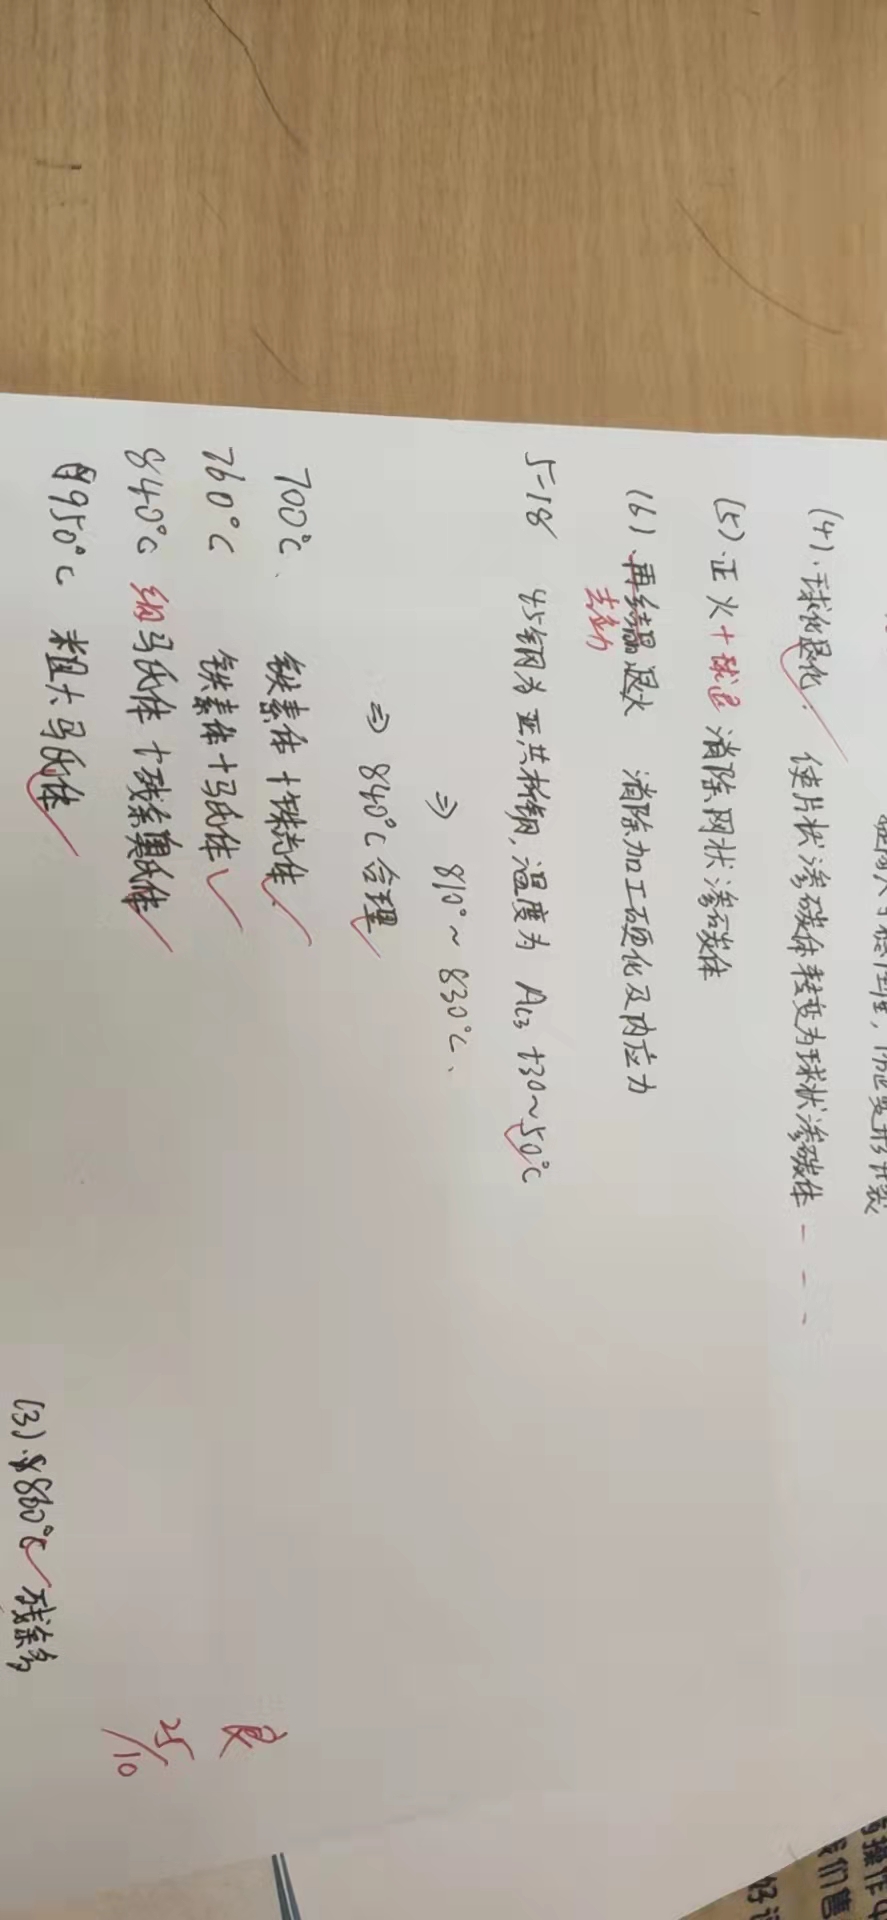 (4)、球化退化. 使片状渗碳体转变为球状渗碳体 - - -
(5)、正火+球退 消除网状渗碳体
(6)、再结晶退火 消除加工硬化及内应力
去应力
5-18 45钢为亚共析钢,温度为 Ac3 +30~50℃
⇒ 810°~830℃、
⇒ 840℃合理
700℃、 铁素体+珠光体
760℃ 铁素体+马氏体
840℃ 细马氏体+残余奥氏体
950℃ 粗大马氏体
(3)、860℃ 残余多
良
25/10